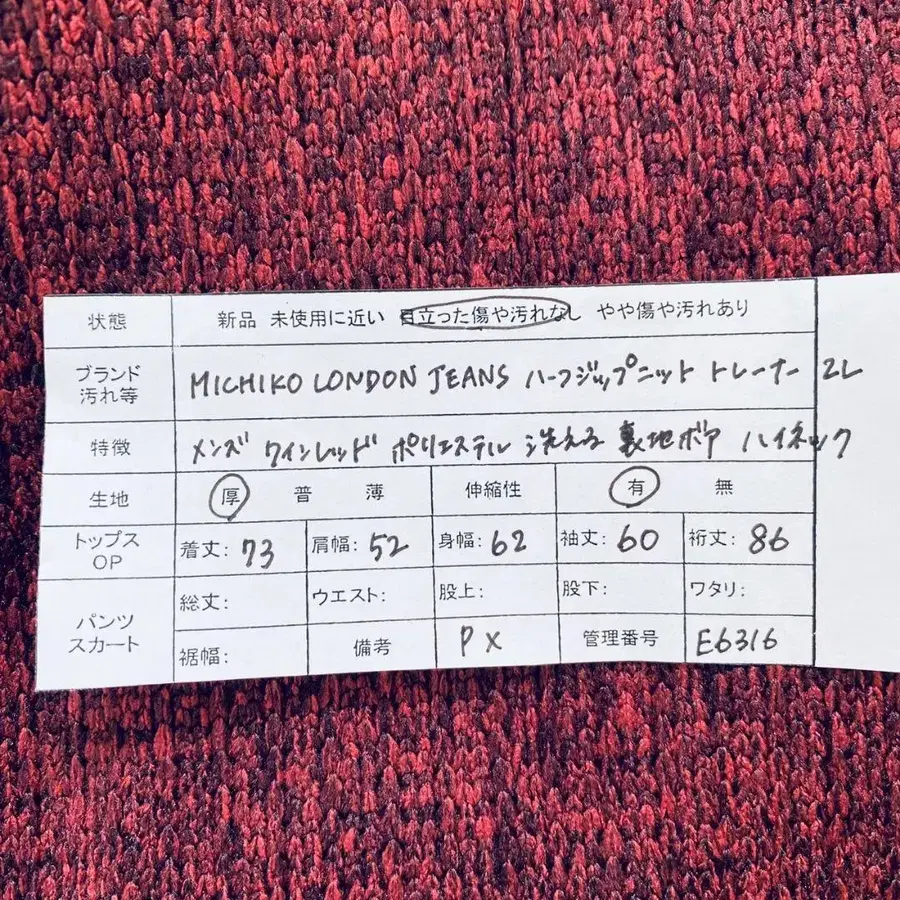 状態 新品 未使用に近い 目立った傷や汚れなし やや傷や汚れあり
ブランド
汚れ等 MICHIKO LONDON JEANS ハーフジップニット トレーナー 2L
特徴 メンズ ワインレッド ポリエステル 洗える 裏地ボア ハイネック
生地 厚 普 薄 伸縮性 有 無
トップス
OP 着丈: 73 肩幅: 52 身幅: 62 袖丈: 60 裄丈: 86
パンツ
スカート 総丈: ウエスト: 股上: 股下: ワタリ:
裾幅: 備考 PX 管理番号 E6316